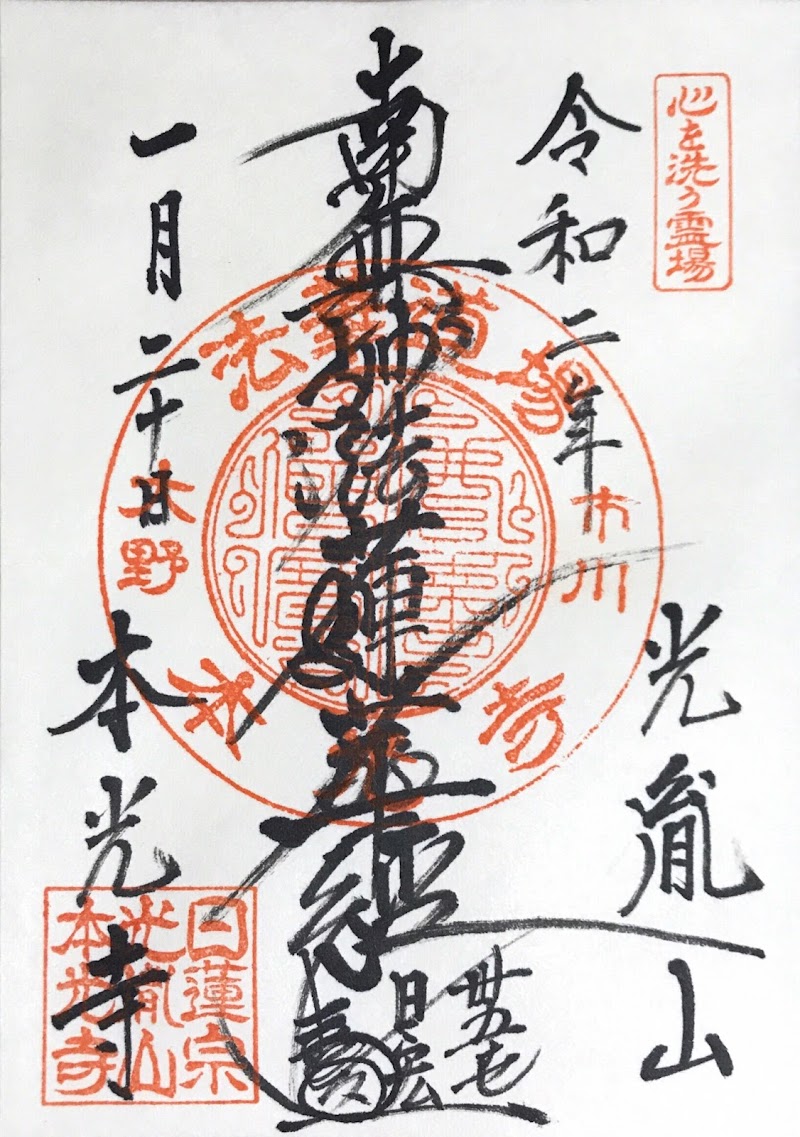 心を洗う霊場
令和二年
光胤山
南無妙法蓮華経
丗五七
日宏
一月二十日
本光寺
法華道場
市川
大野
日蓮宗
光胤山
本光寺